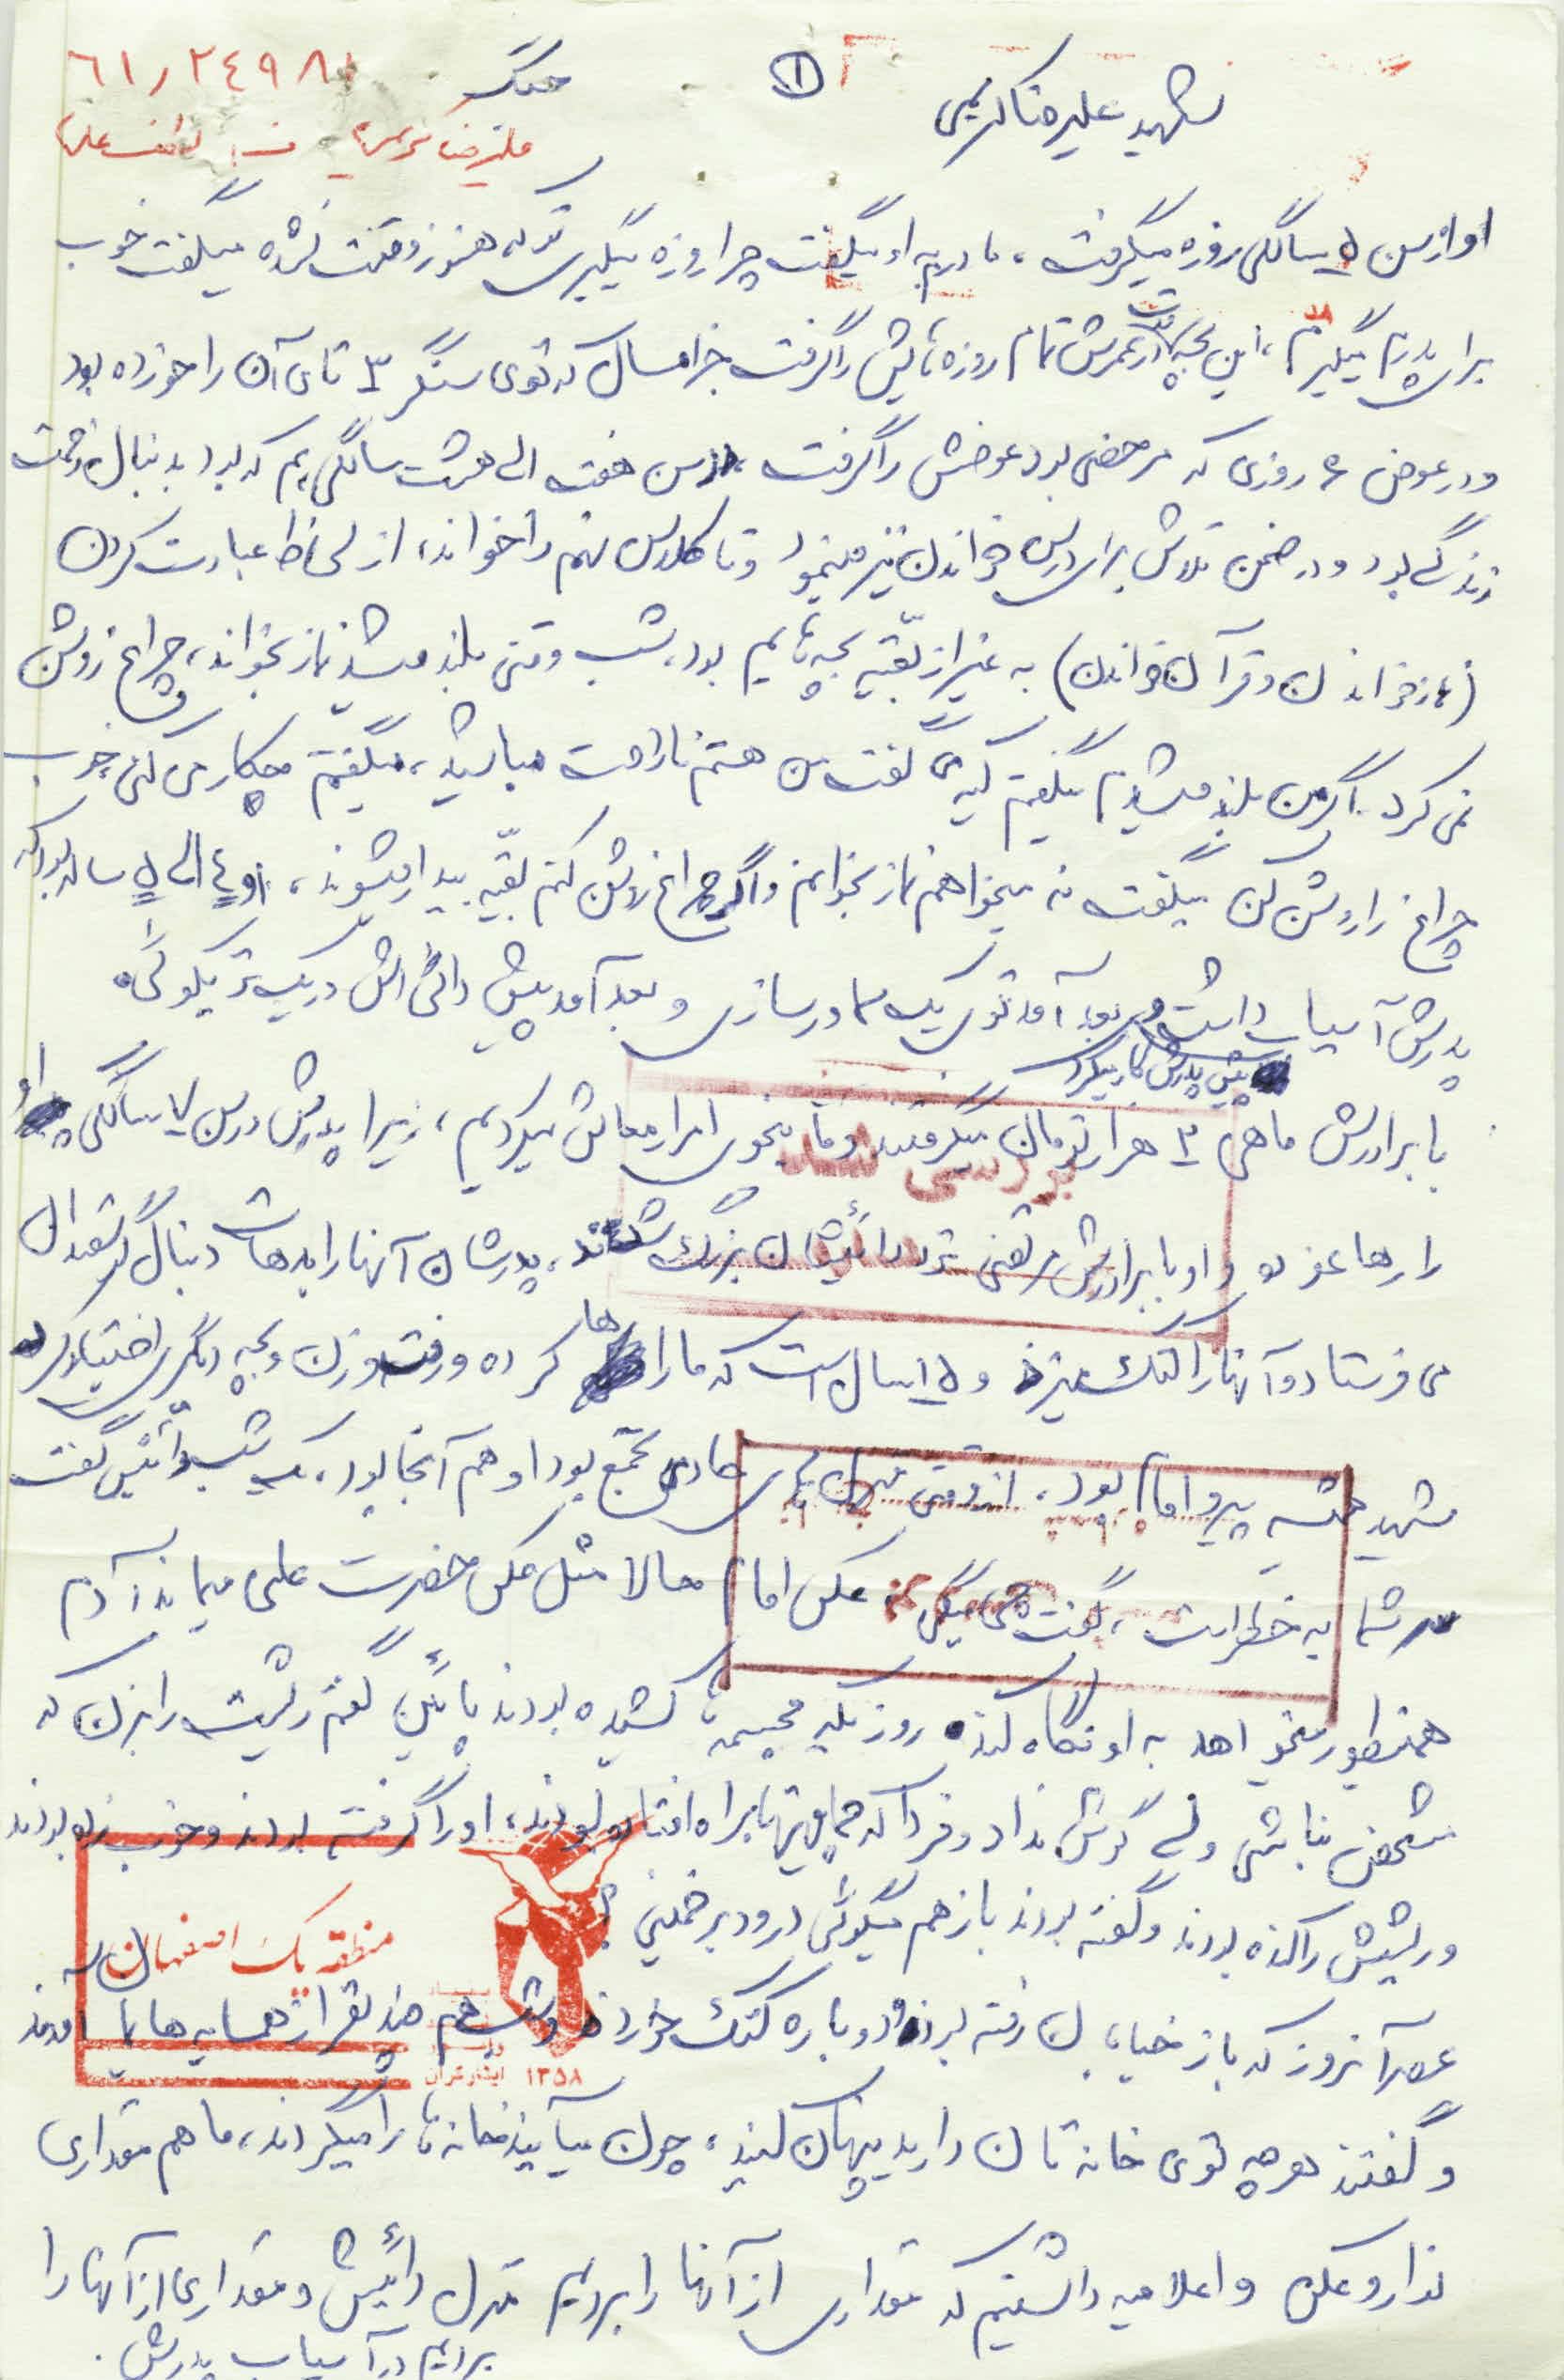 ۶۱/۲۴۹۸۱
جنگ
①
شهید علیرضا کریمی
علیرضا کریمی
او از سن ۵ سالگی روزه میگرفت، مادر به او میگفت چرا روزه میگیری تو که هنوز وقتت نشده میگفت خوب
برای پدرم میگیرم، این بچه از عمرش تمام روزه هایش را گرفت جز امسال که توی سنگر ۳ تای آن را خورده بود
و در عوض ۶ روزی که مرخصی بود عوضش را گرفت، از سن هفت الی هشت سالگی هم که بود بدنبال زحمت
زندگی بود و در ضمن تلاش برای درس خواندن نیز مینمود و تا کلاس نهم را خواند، از لحاظ عبادت کردن
(نماز خواندن و قرآن خواندن) به غیر از بقیه بچه هایم بود، شب وقتی بلند میشد نماز بخواند، چراغ روشن
نمی کرد. اگر من بلند میشدم میگفتم کیه؟ گفت من هستم ناراحت مباشید، میگفتم چکار می کنی خوب
چراغ را روشن کن میگفت نه میخواهم نماز بخوانم و اگر چراغ روشن کنم بقیه بیدار میشوند، او ۴ الی ۵ ساله بود که
پدرش آسیاب داشت و بعد آمد توی یک سماورسازی و بعد آمد پیش دائی اش در یک تریکوئی
پیش پدرش کار میکرد
با برادرش ماهی ۳ هزار تومان میگرفتند و ما بنحوی امرار معاش میکردیم، زیرا پدرش در سن ۷ سالگی او
را رها نمود و او با برادرش مرتضی نزد دائیشان بزرگ شدند، پدرشان آنها را به دهات دنبال گوسفندان
می فرستاد و آنها را کتک میزد و ۱۵ سال است که ما را رها کرده و رفته و زن و بچه دیگری اختیار کرده
شهید همیشه پیرو امام بود. از وقتی بود او هم آنجا بود، یک شب دائیش گفت
سر شما به خطر است، گفت چی میگی؟ عکس امام حالا مثل عکس حضرت علی میماند آدم
همینطور میخواهد به او نگاه کند. روزیکه مجسمه ها کشیده بودند پائین گفتم ریشت را بزن که
مشخص نباشی ولی گوش نداد و فردا که چماقچی‌ها براه افتاده بودند، او را گرفته بودند و خوب زده بودند
و ریشش را کنده بودند و گفته بودند باز هم میگوئی درود بر خمینی؟
منطقه یک اصفهان
عصر آنروز که باز خیابان رفته بودند دوباره کتک خوردند و شب هم چند نفر از همسایه ها آمدند
۱۳۵۸
و گفتند هر چه توی خانه تان دارید پنهان کنید، چون میآیند خانه ها را میگردند، ما هم مقداری
نوار و عکس و اعلامیه داشتیم که مقداری از آنها را بردیم منزل دائیش و مقداری از آنها را
بردیم در آسیاب پدرش.